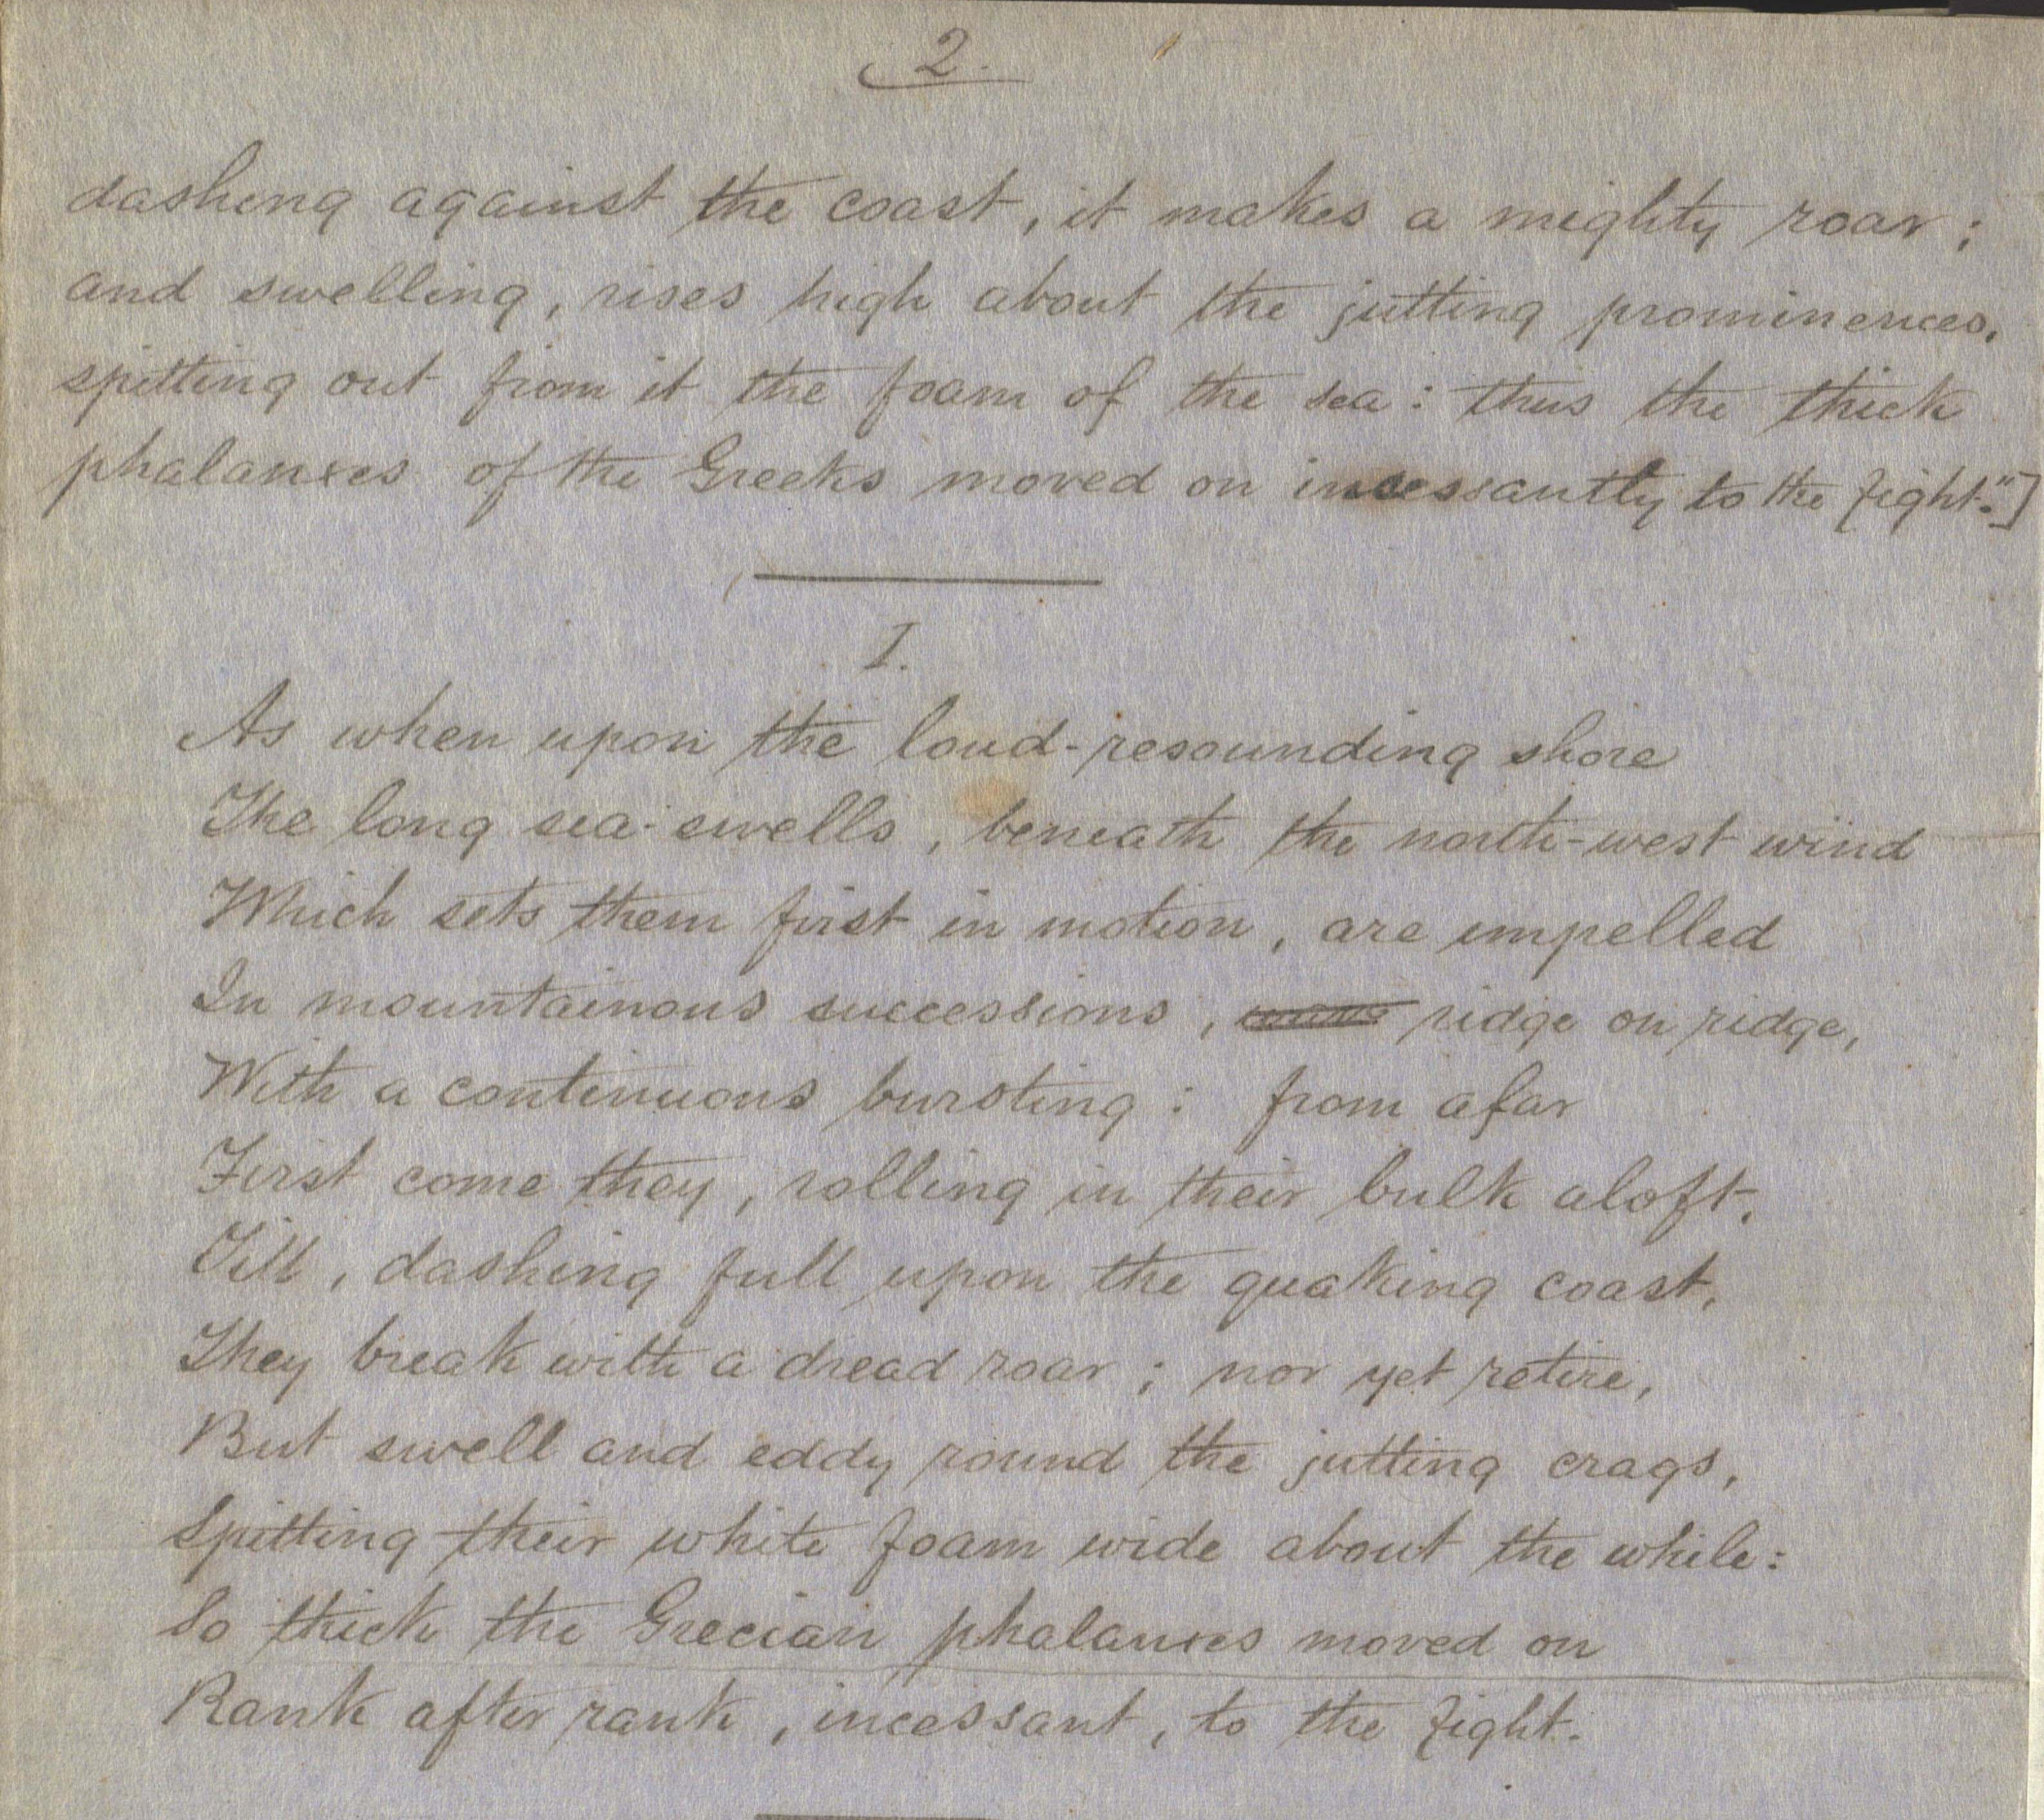 2.
dashing against the coast, it makes a mighty roar;
and swelling, rises high about the jutting prominences,
spitting out from it the foam of the sea: thus the thick
phalanxes of the Greeks moved on incessantly to the fight."]
I.
As when upon the loud-resounding shore
The long sea-swells, beneath the north-west wind
Which sets them first in motion, are impelled
In mountainous successions, ridge on ridge,
With a continuous bursting: from afar
First come they, rolling in their bulk aloft,
Till, dashing full upon the quaking coast,
They break with a dread roar; nor yet retire,
But swell and eddy round the jutting crags,
Spitting their white foam wide about the while:
So thick the Grecian phalanxes moved on
Rank after rank, incessant, to the fight.